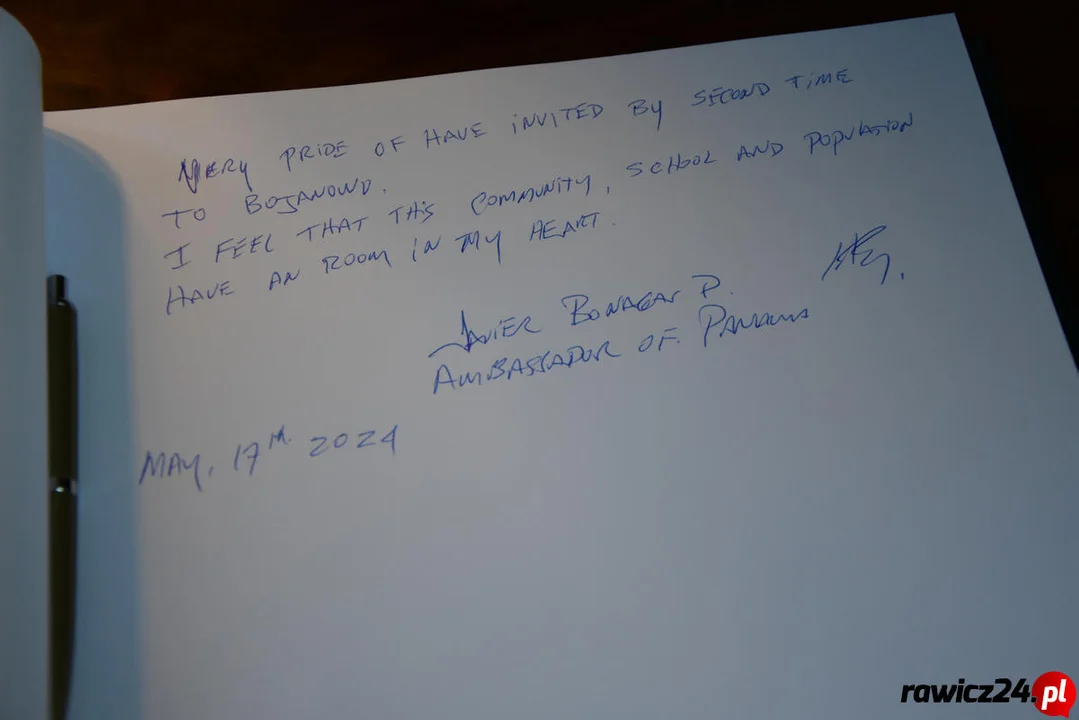 VERY PRIDE OF HAVE INVITED BY SECOND TIME
TO BOJANOWO.
I FEEL THAT THIS COMMUNITY, SCHOOL AND POPULATION
HAVE AN ROOM IN MY HEART.
JAVIER BONAGAS P.
AMBASSADOR OF PANAMA
MAY, 17TH 2024
rawicz24.pl